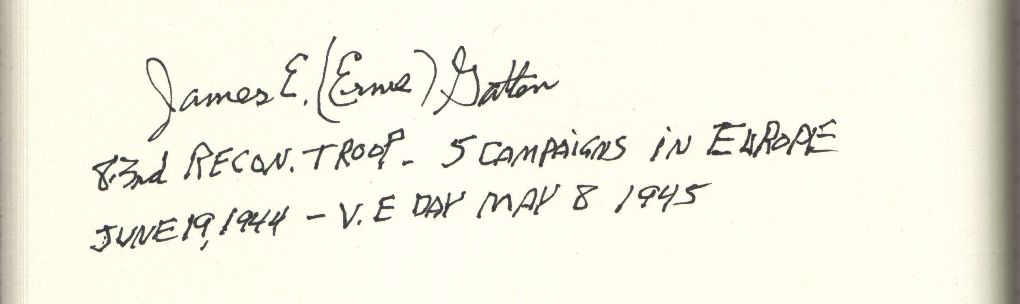 James E. (Ernie) Gatten
83rd RECON. TROOP - 5 CAMPAIGNS iN EUROPE
JUNE 19, 1944 - V.E DAY MAY 8 1945